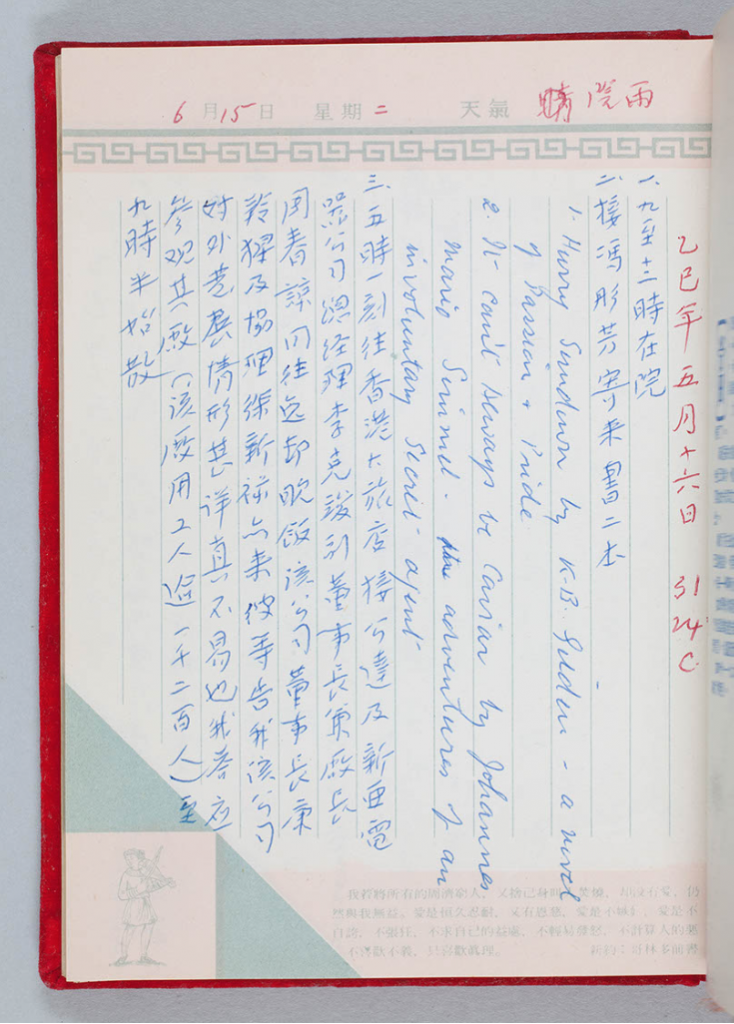 6月15日 星期二 天氣 晴 間雨
乙巳年五月十六日 31 24°C
一、九至十二時在院
二、接馮彤芳寄來書二本
1. Hurry Sundown by K.B. Gilden - a novel
of Passion & Pride
2. It can't always be Caviar by Johannes
Mario Simmel. The adventures of an
involuntary secret agent
三、五時一刻往香港大旅店接公達及新亞電
器公司總經理李克 董事長兼廠長
周春 同往 晚飯該公司董事長
及協理徐新 亦來彼等告我該公司
對外發展情形甚詳真不易也我答應
參观其廠(該廠用工人近一千二百人)至
九時半始散
我若將所有的賙濟窮人，又捨己身叫人焚燒，却沒有愛，仍
然與我無益。愛是恒久忍耐，又有恩慈，愛是不嫉妒，愛是不
自誇，不張狂，不求自己的益處，不輕易發怒，不計算人的惡
不喜歡不義，只喜歡真理。 新約：哥林多前書